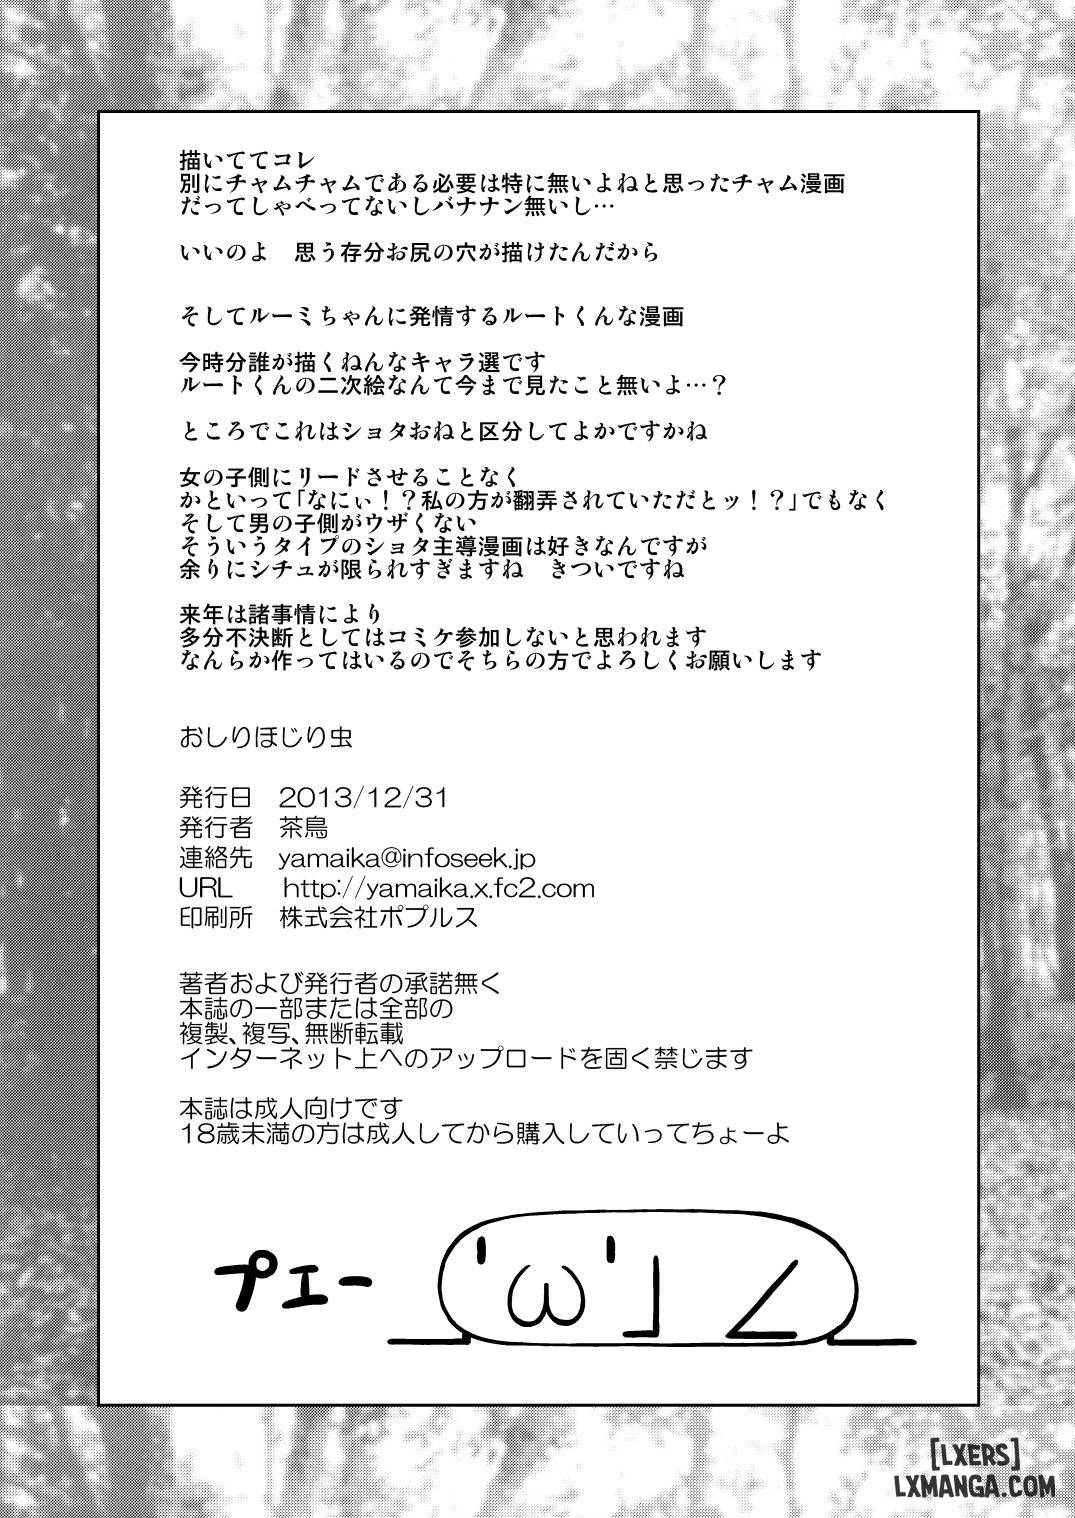 描いててコレ
別にチャムチャムである必要は特に無いよねと思ったチャム漫画
だってしゃべってないしバナナン無いし…
いいのよ　思う存分お尻の穴が描けたんだから
そしてルーミちゃんに発情するルートくんな漫画
今時分誰が描くねんなキャラ選です
ルートくんの二次絵なんて今まで見たこと無いよ…？
ところでこれはショタおねと区分してよかですかね
女の子側にリードさせることなく
かといって「なにぃ！？私の方が翻弄されていただとッ！？」でもなく
そして男の子側がウザくない
そういうタイプのショタ主導漫画は好きなんですが
余りにシチュが限られすぎますね　きついですね
来年は諸事情により
多分不決断としてはコミケ参加しないと思われます
なんらか作ってはいるのでそちらの方でよろしくお願いします
おしりほじり虫
発行日　2013/12/31
発行者　茶鳥
連絡先　yamaika@infoseek.jp
URL　http://yamaika.x.fc2.com
印刷所　株式会社ポプルス
著者および発行者の承諾無く
本誌の一部または全部の
複製、複写、無断転載
インターネット上へのアップロードを固く禁じます
本誌は成人向けです
18歳未満の方は成人してから購入していってちょーよ
プエー
[LXERS]
LXMANGA.COM